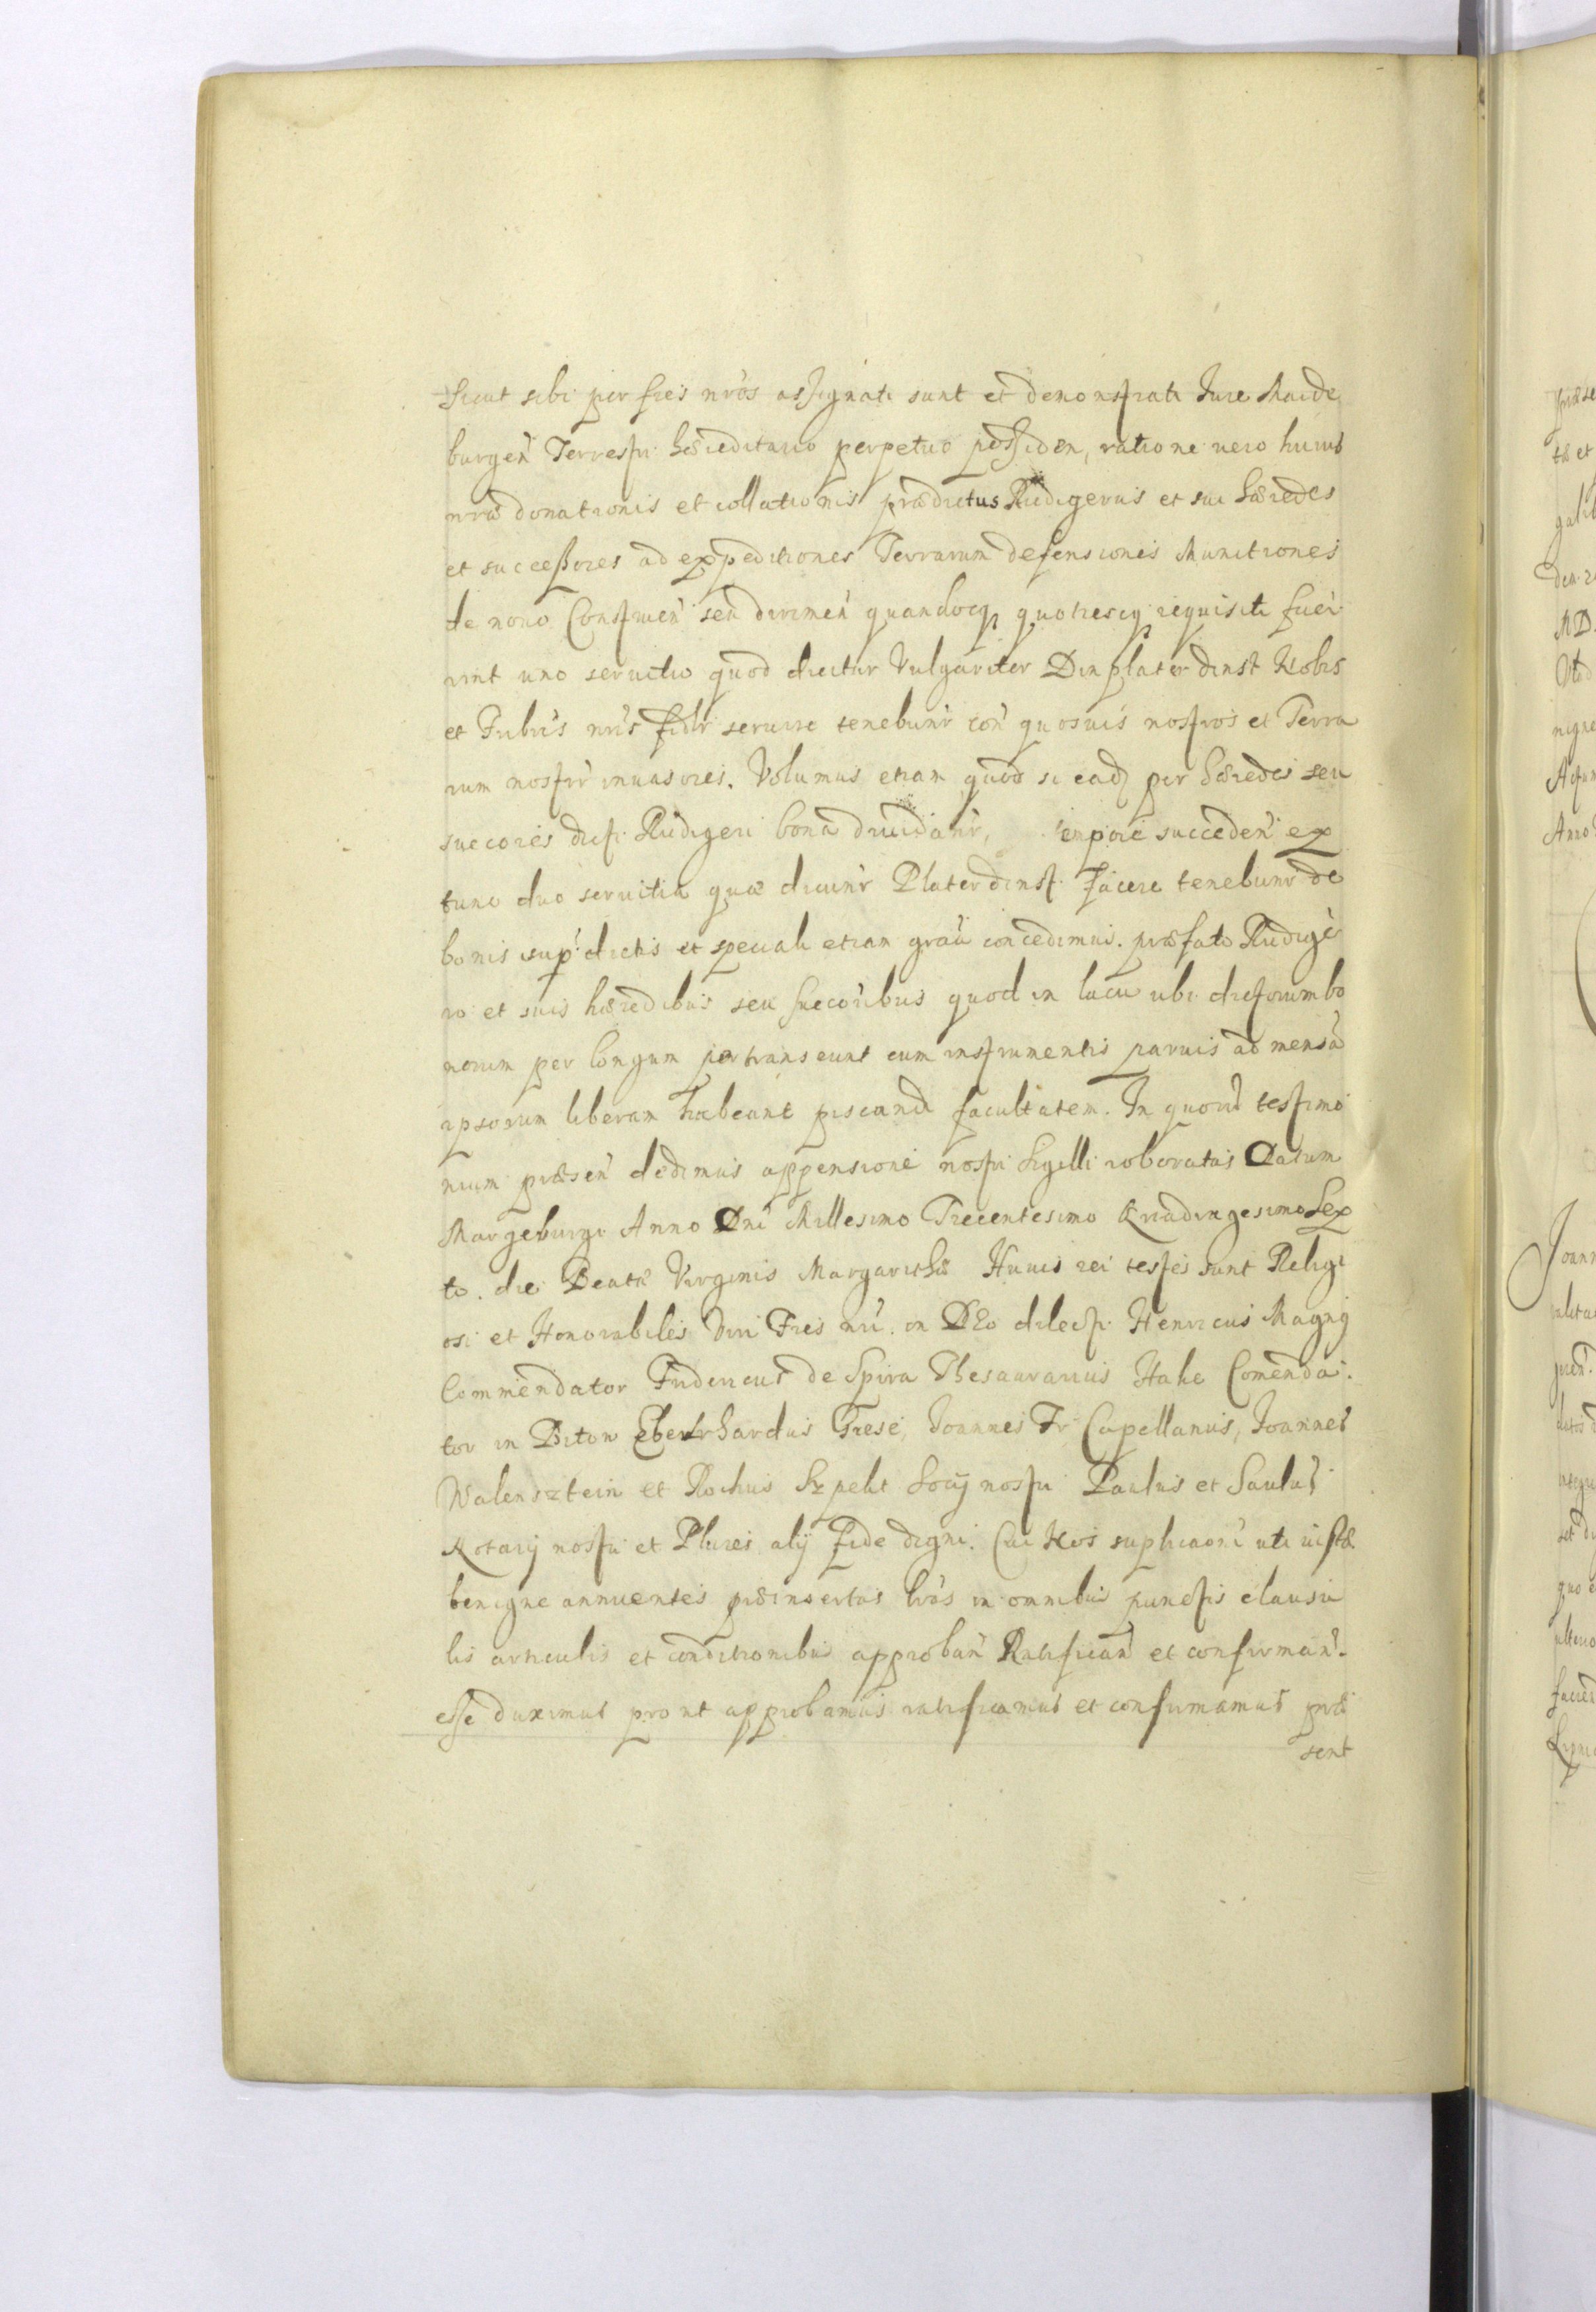 Sicut sibi per fres nros assignati sunt et demonstrati Jure Maide
burgen Terrestri hæreditario perpetuo possiden, ratione uero huius
nræ donationis et collationis prædictus Rudigerus et sui hæredes
et successores ad expeditiones Terrarum defensiones Munitiones
de nouo Construen seu dirimen quandocq quotiescq requisiti fuer
rint uno seruitio quod dicitur Vulgariter Dinplater dinst Nobis
et Frbus nris fidlr seruire tenebunr con quosuis nostros et Terra
rum nostrr inuasores. Volumus etiam quod si eadz per hæredes seu
succores dicti Rudigeri bona diuidanr, tempore succeden ex
tunc duo seruitia quæ dicunr Platerdinst facere tenebunr de
bonis supdictis et speciali etiam grau concedimus. præfato Rudige
ro et suis hæredibus seu succoribus quod in lacu ubi dictorum bo
norum per longum pertranseunt cum instrumentis paruis ad mensa
ipsorum liberam habeant piscandi facultatem. In quorũ testimo
nium præsen dedimus appensione nostri Sigilli roboratas Datum
Margeburgi Anno Dni Millesimo Trecentesimo Quadragesimo Sex
to. die Beatæ Virginis Margarithæ Huius rei testes sunt Religi
osi et Honorabiles Viri Fres nri. in Deo dilecti Henricus Magnq
Commendator Fridericus de Spira Thesaurarius Hake Comenda
tor in Biton Eberhardus Trese, Joannes Fr Capellanus, Joannes
Walensztein et Rochus Szpelt Socij nostri Paulus et Saulus
Notarij nostri et Plures alij fide digni. Cui Nos suplicaoni uti iustæ
benigne annuentes præinsertas lras in omnibus punctis clausu
lis articulis et conditionibus approban Ratifican et confirman
esse duximus prout approbamus ratificamus et confirmamus præ
sent